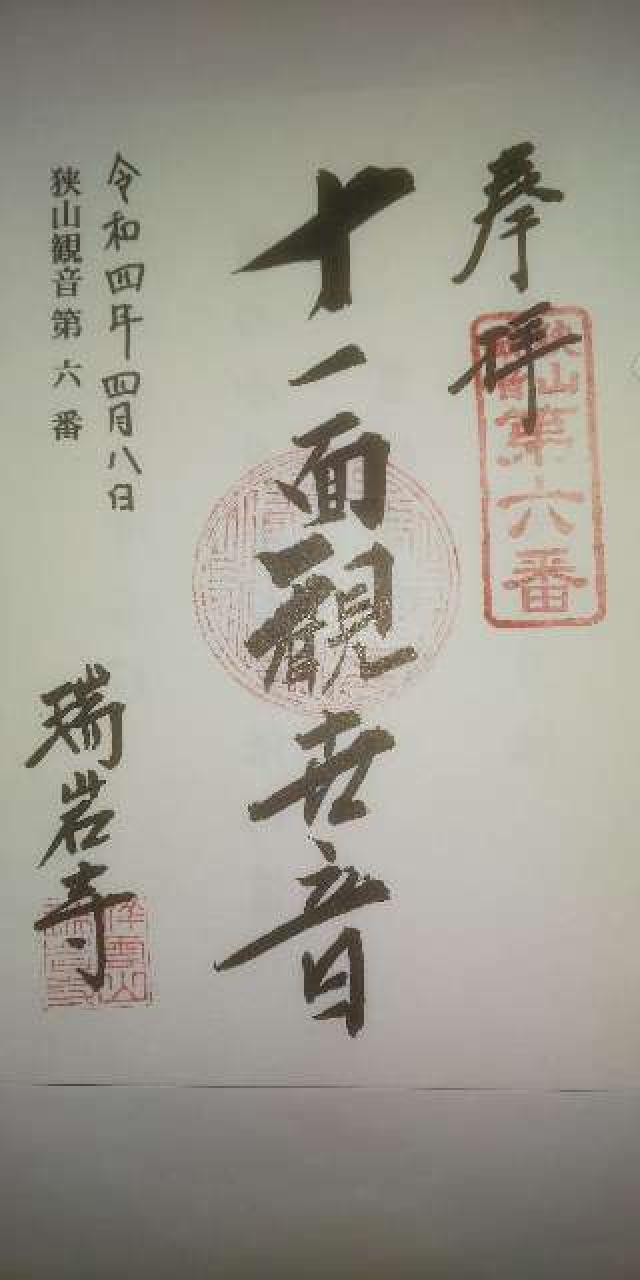 奉拝
狭山
第六番
十一面観世音
令和四年四月八日
狭山観音第六番
瑞岩寺